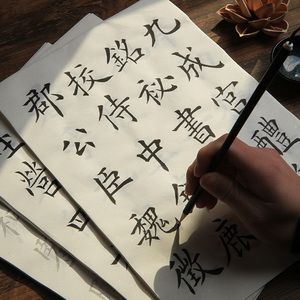 九成宮醴
銘秘書
挍侍中鹿
郡公臣魏徵
營